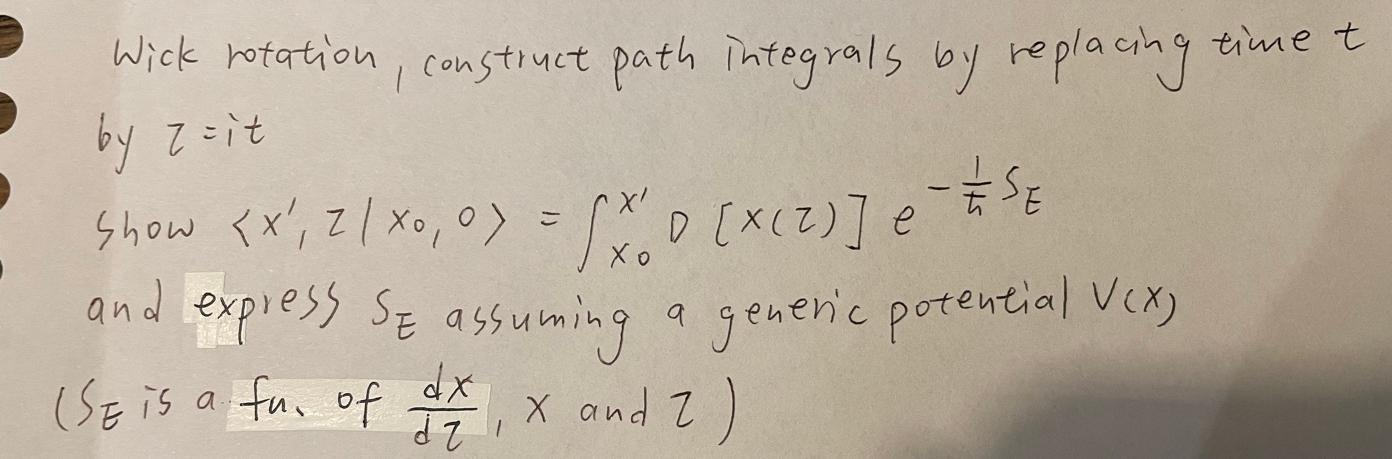 Wick rotation, construct path integrals by replacing time t
by τ = it
show <x', τ | x₀, 0> = ∫_{x₀}^{x'} D [x(τ)] e^{-\frac{1}{ħ} S_E}
and express S_E assuming a generic potential V(x)
(S_E is a fn. of \frac{dx}{dτ}, x and τ)